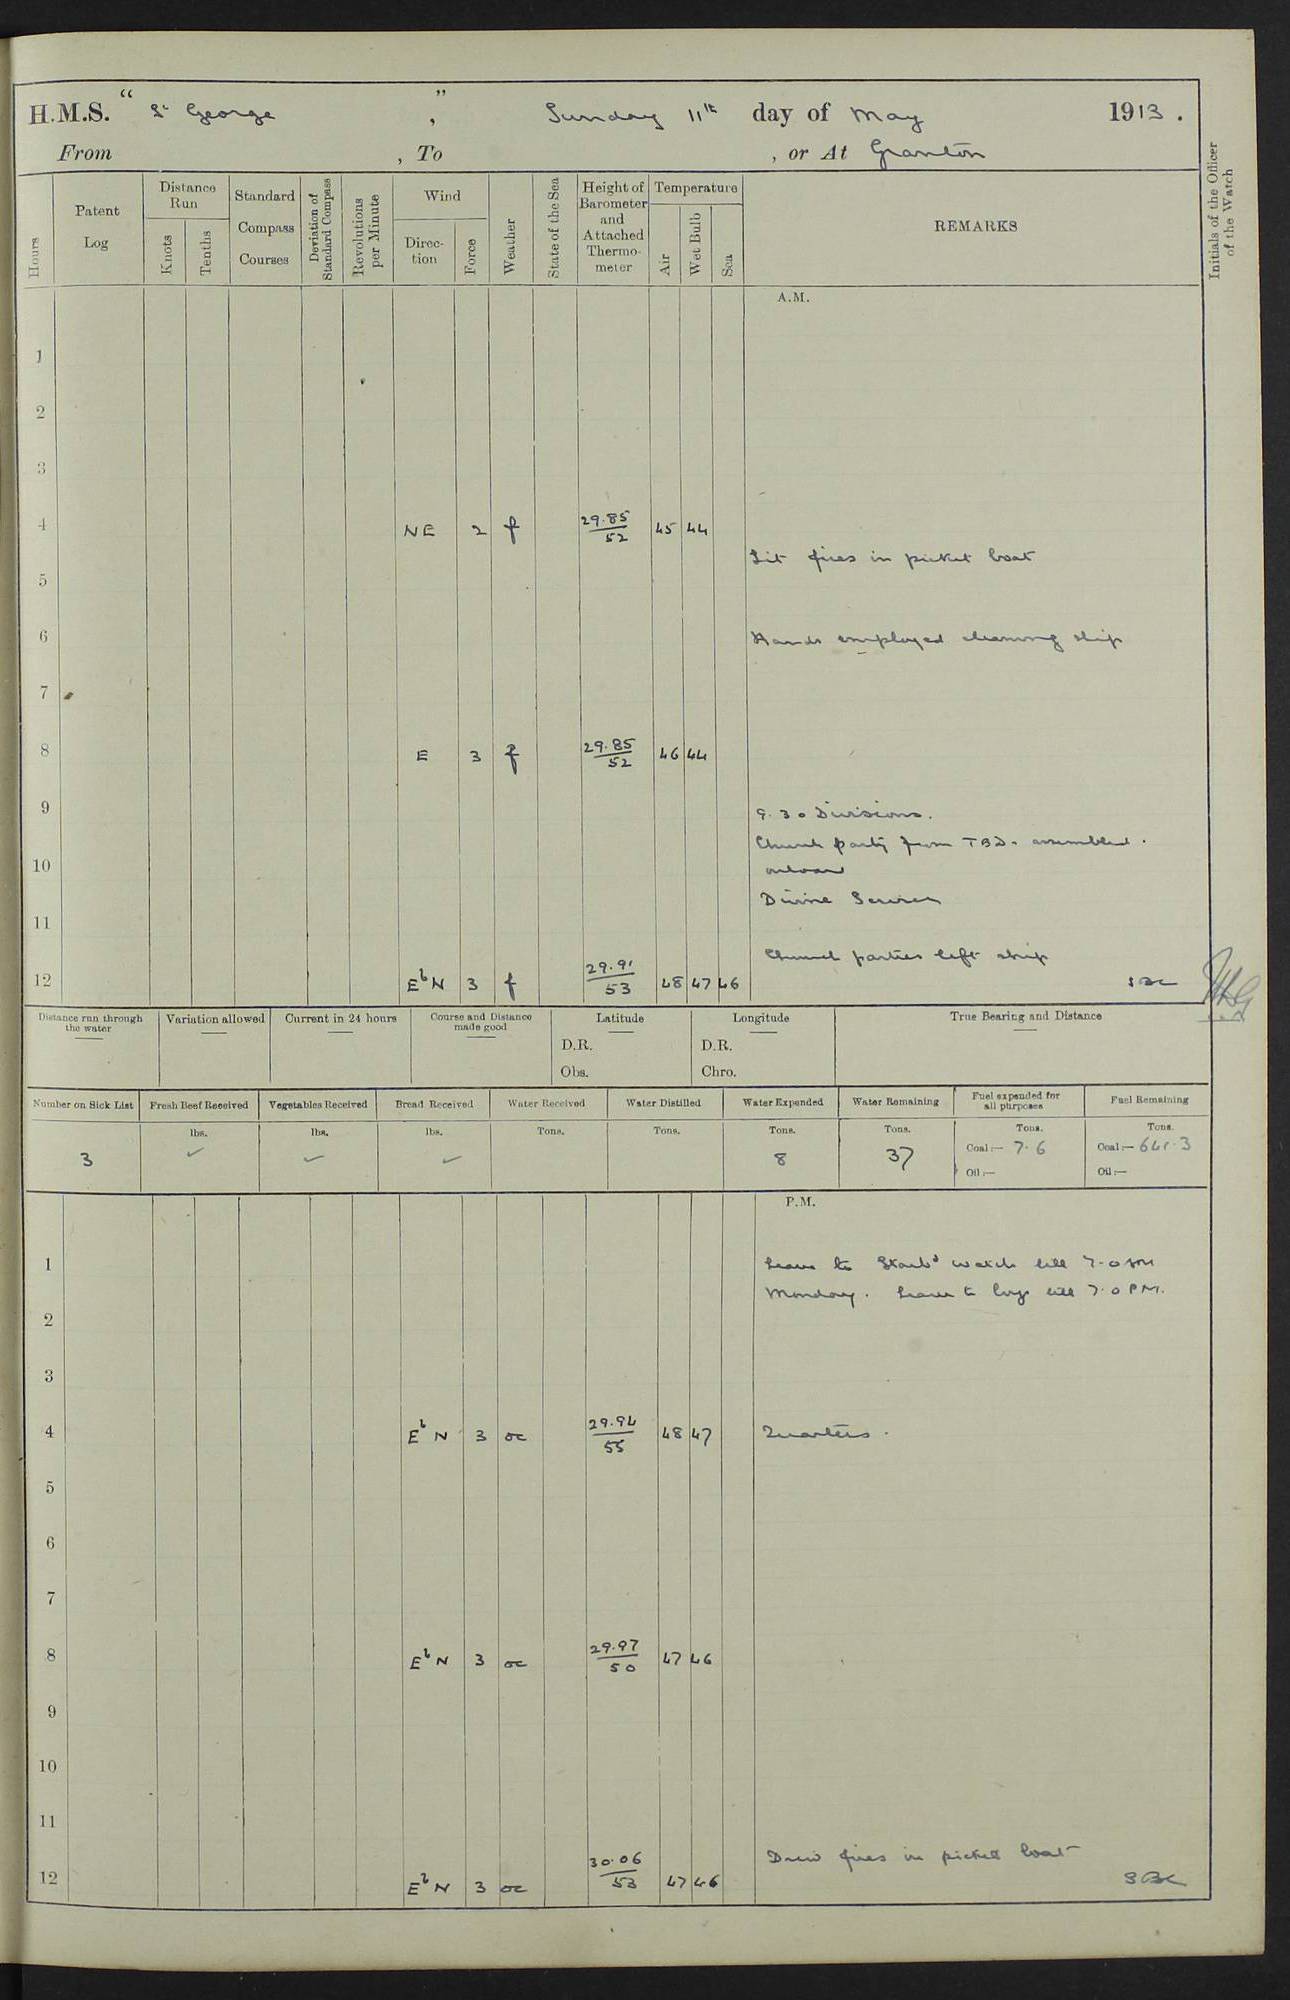 H.M.S. “ St George , ” Sunday 11th day of May 1913 .
From , To , or At Granton
Hours
Patent Log
Distance Run
Knots
Tenths
Standard Compass Courses
Deviation of Standard Compass
Revolutions per Minute
Wind
Direc- tion
Force
Weather
State of the Sea
Height of Barometer and Attached Thermo- meter
Temperature
Air
Wet Bulb
Sea
REMARKS
Initials of the Officer of the Watch
A.M.
1
2
3
4 NE 2 f 29.85 52 45 44
Lit fires in picket boat
5
6 Hands employed cleaning ship
7
8 E 3 f 29.85 52 46 44
9 9.30 Divisions.
Church party from TBD. assembled.
10 onboard
Divine Service
11
Church parties left ship
12 EbN 3 f 29.91 53 48 47 46
Distance run through the water
Variation allowed
Current in 24 hours
Course and Distance made good
Latitude
D.R.
Obs.
Longitude
D.R.
Chro.
True Bearing and Distance
Number on Sick List
3
Fresh Beef Received
lbs.
Vegetables Received
lbs.
Bread Received
lbs.
Water Received
Tons.
Water Distilled
Tons.
Water Expended
Tons.
8
Water Remaining
Tons.
37
Fuel expended for all purposes
Tons.
Coal:— 7.6
Oil:—
Fuel Remaining
Tons.
Coal:— 641.3
Oil:—
P.M.
1 Leave to Starbd watch till 7.0 AM
Monday. Leave to boys till 7.0 PM.
2
3
4 EbN 3 oc 29.94 55 48 47 Quarters.
5
6
7
8 EbN 3 oc 29.97 50 47 46
9
10
11
Drew fires in picket boat
12 EbN 3 oc 30.06 53 47 46